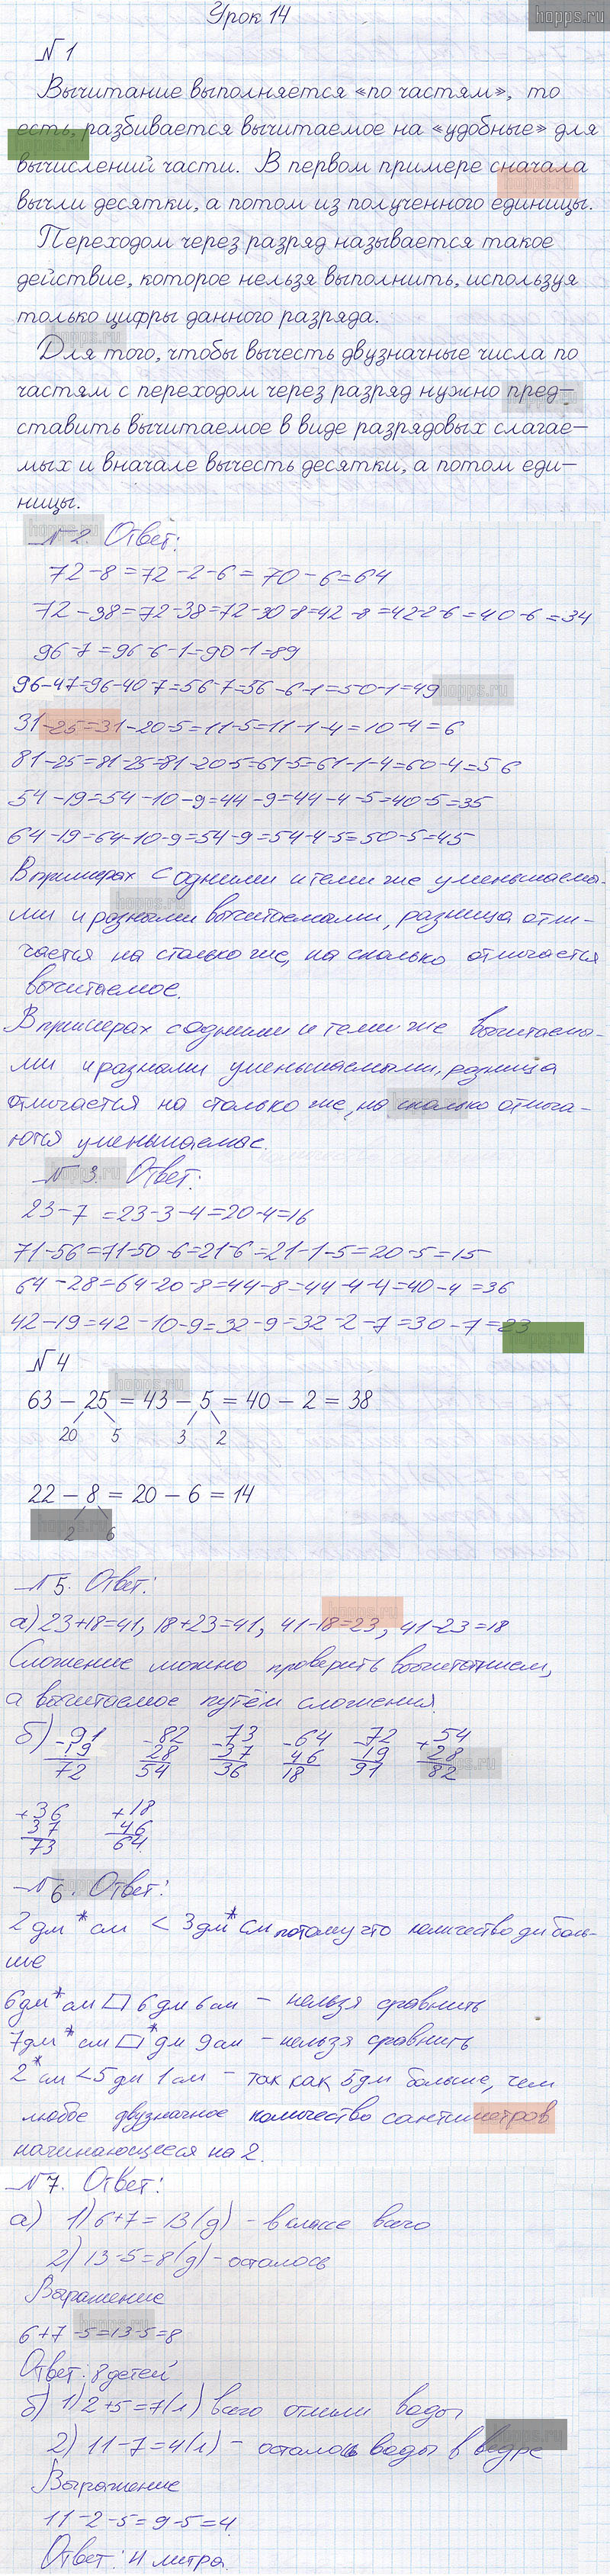 Урок 14
hopps.ru
№1
Вычитание выполняется «по частям», то
есть, разбивается вычитаемое на «удобные» для
вычислений части. В первом примере сначала
вычли десятки, а потом из полученного единицы.
Переходом через разряд называется такое
действие, которое нельзя выполнить, используя
только цифры данного разряда.
Для того, чтобы вычесть двузначные числа по
частям с переходом через разряд нужно пред-
ставить вычитаемое в виде разрядовых слагае-
мых и вначале вычесть десятки, а потом еди-
ницы.
№2. Ответ:
72-8=72-2-6=70-6=64
72-38=72-38=72-30-8=42-8=42-2-6=40-6=34
96-7=96-6-1=90-1=89
96-47=96-40-7=56-7=56-6-1=50-1=49
31-25=31-20-5=11-5=11-1-4=10-4=6
81-25=81-25=81-20-5=61-5=61-1-4=60-4=56
54-19=54-10-9=44-9=44-4-5=40-5=35
64-19=64-10-9=54-9=54-4-5=50-5=45
В примерах с одними и теми же уменьшаемы-
ми и разными вычитаемами, разница отли-
чается на столько же, на сколько отличается
вычитаемое.
В примерах с одними и теми же вычитаемы-
ми и разнами уменьшаемыми, разница
отличается на столько же, на сколько отлича-
ются уменьшаемые.
№3. Ответ:
23-7=23-3-4=20-4=16
71-56=71-50-6=21-6=21-1-5=20-5=15
64-28=64-20-8=44-8=44-4-4=40-4=36
42-19=42-10-9=32-9=32-2-7=30-7=23
№4
63 - 25 = 43 - 5 = 40 - 2 = 38
20 5 3 2
22 - 8 = 20 - 6 = 14
2 6
№5. Ответ:
а) 23+18=41, 18+23=41, 41-18=23, 41-23=18
Сложение можно проверить вычитанием,
а вычитаемое путём сложения.
б) -91 -82 -73 -64 -72 +54
19 28 37 46 19 28
72 54 36 18 91 82
+36 +18
37 46
73 64
№6. Ответ:
2 дм * см < 3 дм * см потому что количество дм боль-
ше
6 дм * см □ 6 дм 6 см - нельзя сравнить
7 дм * см □ * дм 9 см - нельзя сравнить
2* см < 5 дм 1 см - так как 5 дм больше, чем
любое двузначное количество сантиметров
начинающееся на 2.
№7. Ответ:
а) 1) 6+7=13(д) - в классе всего
2) 13-5=8(д) - осталось
Выражение
6+7-5=13-5=8
Ответ: 8 детей
б) 1) 2+5=7(л) всего отлили воды
2) 11-7=4(л) - осталось воды в ведре
Выражение
11-2-5=9-5=4
Ответ: 4 литра.